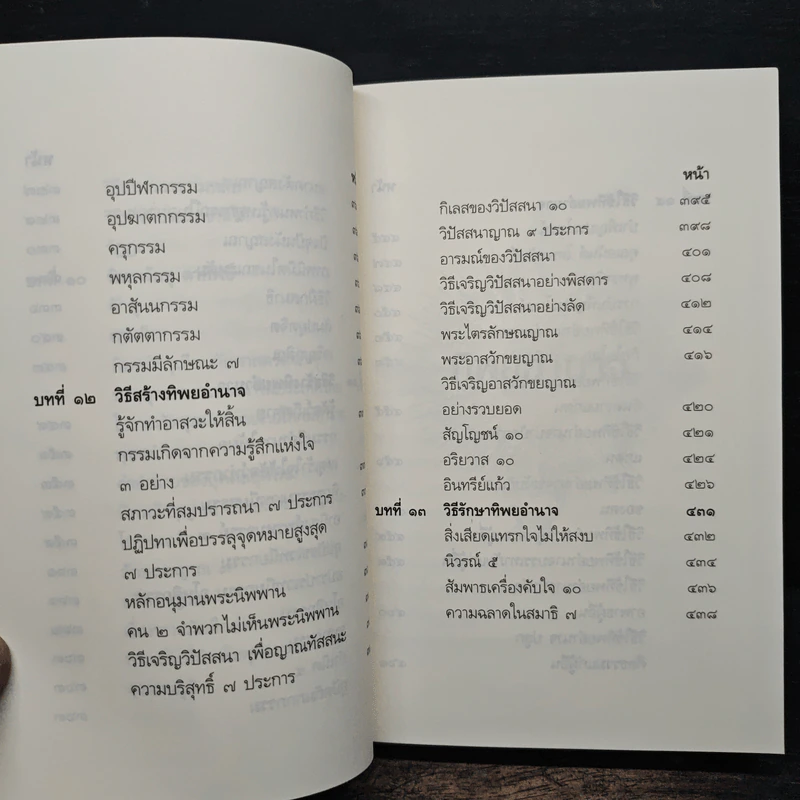 อุปปีฬกกรรม
อุปฆาตกกรรม
ครุกรรม
พหุลกรรม
อาสันนกรรม
กตัตตากรรม
กรรมมีลักษณะ ๗
บทที่ ๑๒ วิธีสร้างทิพยอำนาจ
รู้จักทำอาสวะให้สิ้น
กรรมเกิดจากความรู้สึกแห่งใจ
๓ อย่าง
สภาวะที่สมปรารถนา ๗ ประการ
ปฏิปทาเพื่อบรรลุจุดหมายสูงสุด
๗ ประการ
หลักอนุมานพระนิพพาน
คน ๒ จำพวกไม่เห็นพระนิพพาน
วิธีเจริญวิปัสสนา เพื่อญาณทัสสนะ
ความบริสุทธิ์ ๗ ประการ
หน้า
กิเลสของวิปัสสนา ๑๐ ๓๙๕
วิปัสสนาญาณ ๙ ประการ ๓๙๘
อารมณ์ของวิปัสสนา ๔๐๑
วิธีเจริญวิปัสสนาอย่างพิสดาร ๔๐๘
วิธีเจริญวิปัสสนาอย่างลัด ๔๑๒
พระไตรลักษณญาณ ๔๑๔
พระอาสวักขยญาณ ๔๑๖
วิธีเจริญอาสวักขยญาณ
อย่างรวบยอด ๔๒๐
สัญโญชน์ ๑๐ ๔๒๑
อริยวาส ๑๐ ๔๒๔
อินทรีย์แก้ว ๔๒๖
บทที่ ๑๓ วิธีรักษาทิพยอำนาจ ๔๓๑
สิ่งเสียดแทรกใจไม่ให้สงบ ๔๓๒
นิวรณ์ ๕ ๔๓๔
สัมพาธเครื่องคับใจ ๑๐ ๔๓๖
ความฉลาดในสมาธิ ๗ ๔๓๘